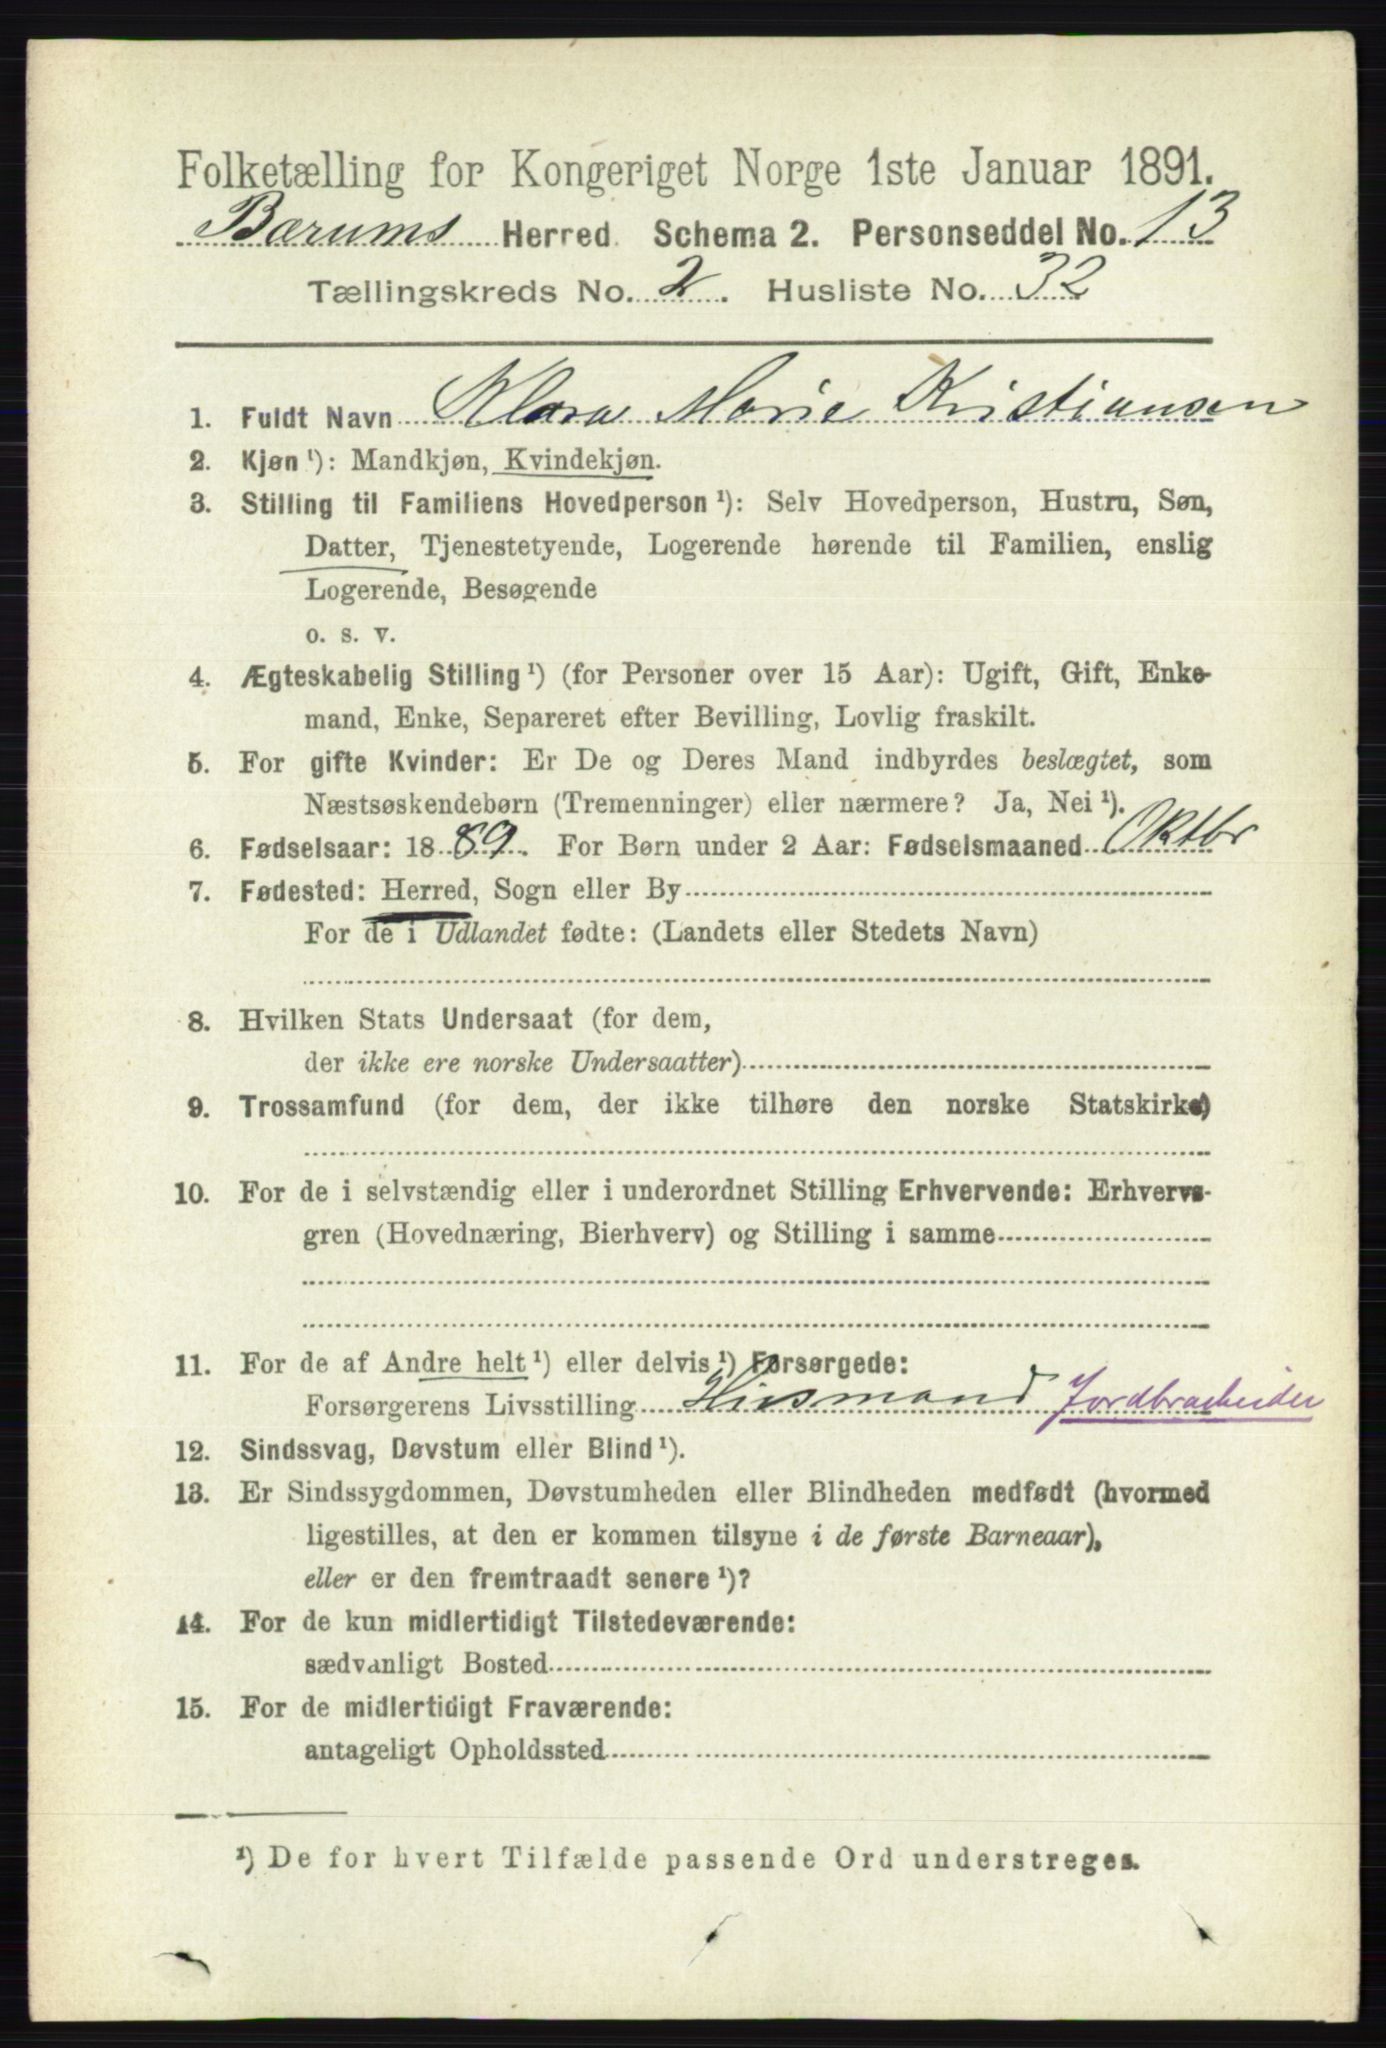 Folketælling for Kongeriget Norge 1ste Januar 1891.
Bærums Herred. Schema 2. Personseddel No. 13
Tællingskreds No. 2. Husliste No. 32
1. Fuldt Navn Klara Marie Kristiansen
2. Kjøn ¹): Mandkjøn, Kvindekjøn.
3. Stilling til Familiens Hovedperson ¹): Selv Hovedperson, Hustru, Søn,
Datter, Tjenestetyende, Logerende hørende til Familien, enslig
Logerende, Besøgende
o. s. v.
4. Ægteskabelig Stilling ¹) (for Personer over 15 Aar): Ugift, Gift, Enke-
mand, Enke, Separeret efter Bevilling, Lovlig fraskilt.
5. For gifte Kvinder: Er De og Deres Mand indbyrdes beslægtet, som
Næstsøskendebørn (Tremenninger) eller nærmere? Ja, Nei ¹).
6. Fødselsaar: 1889. For Børn under 2 Aar: Fødselsmaaned Oktbr
7. Fødested: Herred, Sogn eller By
For de i Udlandet fødte: (Landets eller Stedets Navn)
8. Hvilken Stats Undersaat (for dem,
der ikke ere norske Undersaatter)
9. Trossamfund (for dem, der ikke tilhøre den norske Statskirke)
10. For de i selvstændig eller i underordnet Stilling Erhvervende: Erhvervs-
gren (Hovednæring, Bierhverv) og Stilling i samme
11. For de af Andre helt ¹) eller delvis ¹) Forsørgede:
Forsørgerens Livsstilling Husmand Jordbrarbeider
12. Sindssvag, Døvstum eller Blind ¹).
13. Er Sindssygdommen, Døvstumheden eller Blindheden medfødt (hvormed
ligestilles, at den er kommen tilsyne i de første Barneaar),
eller er den fremtraadt senere ¹)?
14. For de kun midlertidigt Tilstedeværende:
sædvanligt Bosted
15. For de midlertidigt Fraværende:
antageligt Opholdssted
¹) De for hvert Tilfælde passende Ord understreges.